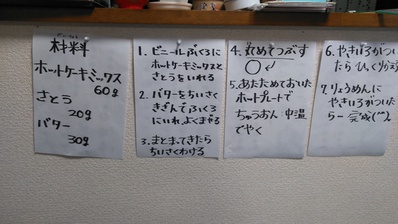 材料
ホットケーキミックス
60g
さとう
20g
バター
30g
1. ビニールぶくろに
ホットケーキミックスと
さとうをいれる
2. バターをちいさく
きざんでふくろ
にいれ、よくまぜる
3. まとまってきたら
ちいさくわける
4. 丸めてつぶす
5. あたためておいた
ホットプレートで
ちゅうおん 中温
でやく
6. やきいろがつい
たらひっくりかえす
7. りょうめんに
やきいろがついた
らー完成(^^)